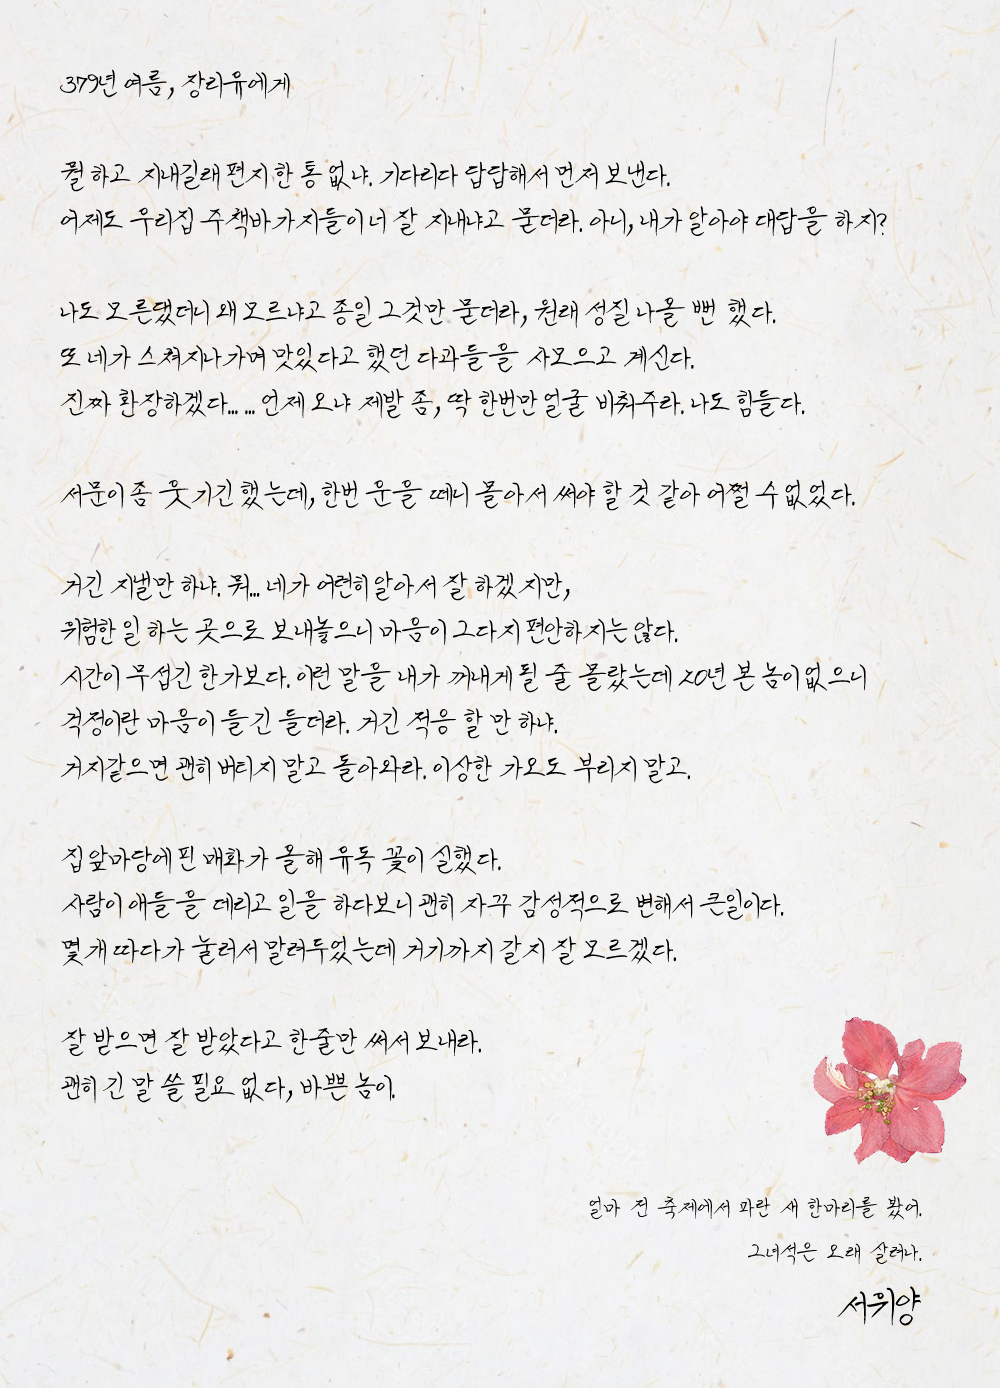 379년 여름, 장리유에게
뭘 하고 지내길래 편지 한 통 없냐. 기다리다 답답해서 먼저 보낸다.
어제도 우리집 주책바가지들이 너 잘 지내냐고 묻더라. 아니, 내가 알아야 대답을 하지?
나도 모른댔더니 왜 모르냐고 종일 그것만 묻더라, 원래 성질 나올 뻔 했다.
또 네가 스쳐지나가며 맛있다고 했던 다과들을 사모으고 계신다.
진짜 환장하겠다... ... 언제 오냐 제발 좀, 딱 한번만 얼굴 비춰주라. 나도 힘들다.
서문이 좀 웃기긴 했는데, 한번 운을 떼니 몰아서 써야 할 것 같아 어쩔 수 없었다.
거긴 지낼만 하냐. 뭐... 네가 어련히 알아서 잘 하겠지만,
위험한 일 하는 곳으로 보내놓으니 마음이 그다지 편안하지는 않다.
시간이 무섭긴 한가보다. 이런 말을 내가 꺼내게 될 줄 몰랐는데 20년 본 놈이 없으니
걱정이란 마음이 들긴 들더라. 거긴 적응 할 만 하냐.
거지같으면 괜히 버티지 말고 돌아와라. 이상한 가오도 부리지 말고.
집 앞마당에 핀 매화가 올해 유독 꽃이 실했다.
사람이 애들을 데리고 일을 하다보니 괜히 자꾸 감성적으로 변해서 큰일이다.
몇 개 따다가 눌러서 말려두었는데 거기까지 갈지 잘 모르겠다.
잘 받으면 잘 받았다고 한줄만 써서 보내라.
괜히 긴 말 쓸 필요 없다, 바쁜 놈이.
얼마 전 축제에서 파란 새 한마리를 봤어.
그녀석은 오래 살려나.
서휘양